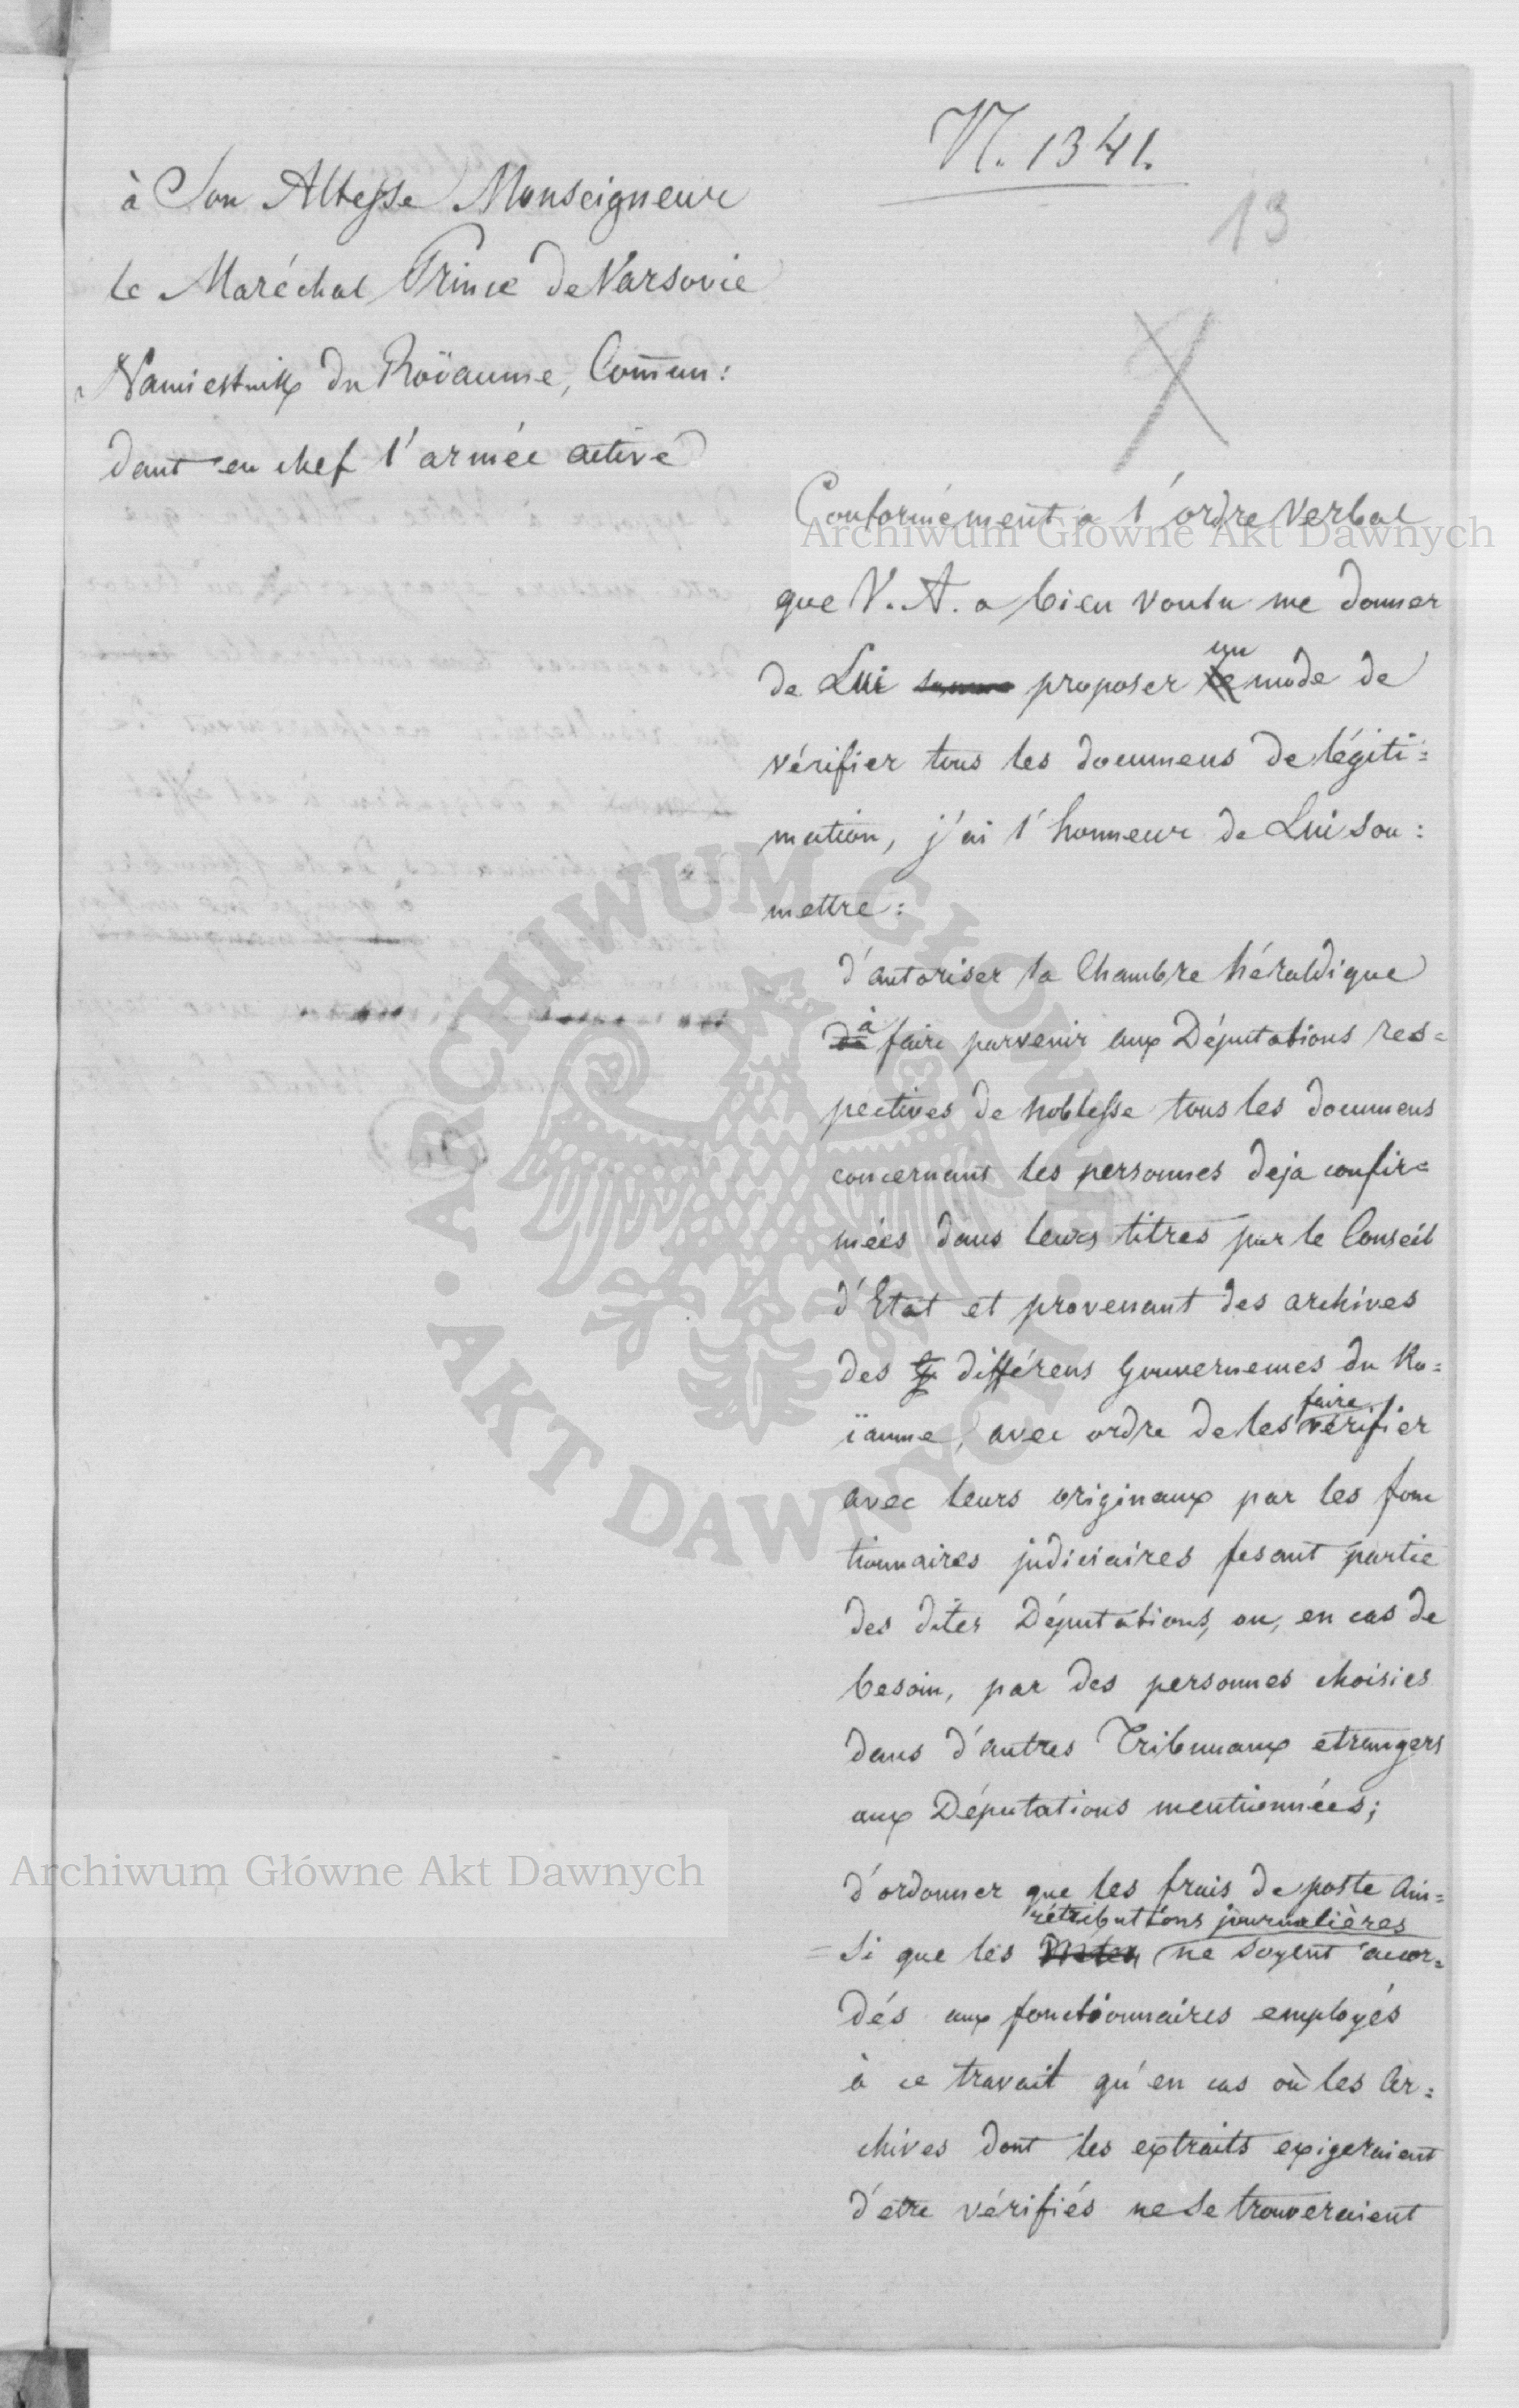 N. 1341.
13
à Son Altesse Monseigneur
le Maréchal Prince de Varsovie
Namiestnik du Roÿaume, Comman:
dant en chef l'armée active
Conformément a l'ordre verbal
que V. A. a bien voulu me donner
de Lui proposer un mode de
vérifier tous les documens de légiti=
mation, j'ai l'honneur de Lui sou:
mettre:
d'autoriser la Chambre héraldique
à faire parvenir aux Députations res=
pectives de noblesse tous les documens
concernant les personnes deja confir=
mées dans leurs titres par le Conseil
d'Etat et provenant des archives
des différens Gouvernemes du Ro=
ïaume, avec ordre de les faire vérifier
avec leurs originaux par les fonc
tionnaires judiciaires fesant partie
des dites Députations, ou, en cas de
besoin, par des personnes choisies
dans d'autres Tribunaux etrangers
aux Députations mentionnées;
d'ordonner que les frais de poste ain=
rétributions journalières
=si que les ne soyent accor=
dés aux fonctionnaires employés
à ce travail qu'en cas où les Ar=
chives dont les extraits exigeraient
d'etre vérifiés ne se trouveraient
Archiwum Główne Akt Dawnych
Archiwum Główne Akt Dawnych
ARCHIWUM GŁÓWNE
AKT DAWNYCH